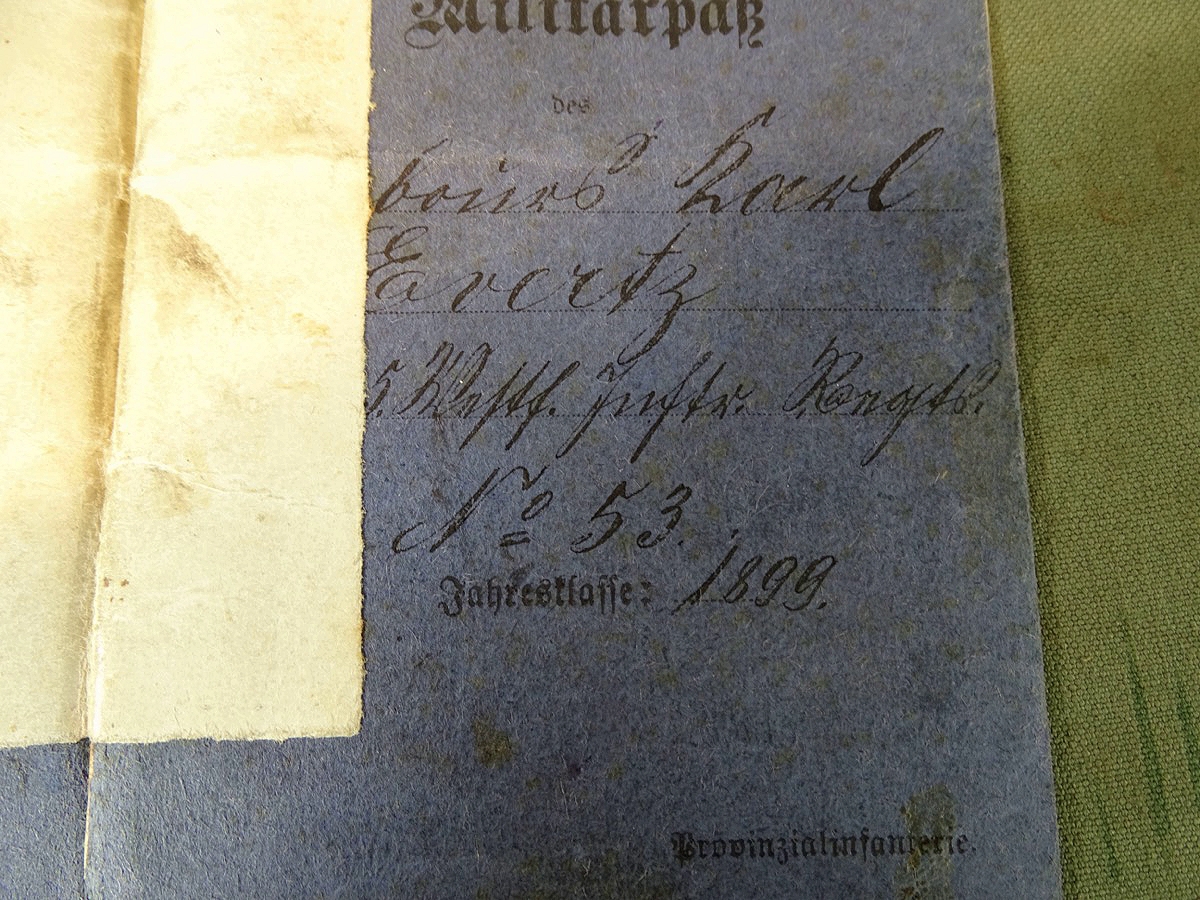 Militärpaß
des
bours Karl
Evertz
5. Westf. Inftr. Regts.
No 53.
Jahresklasse: 1899.
Provinzialinfanterie.